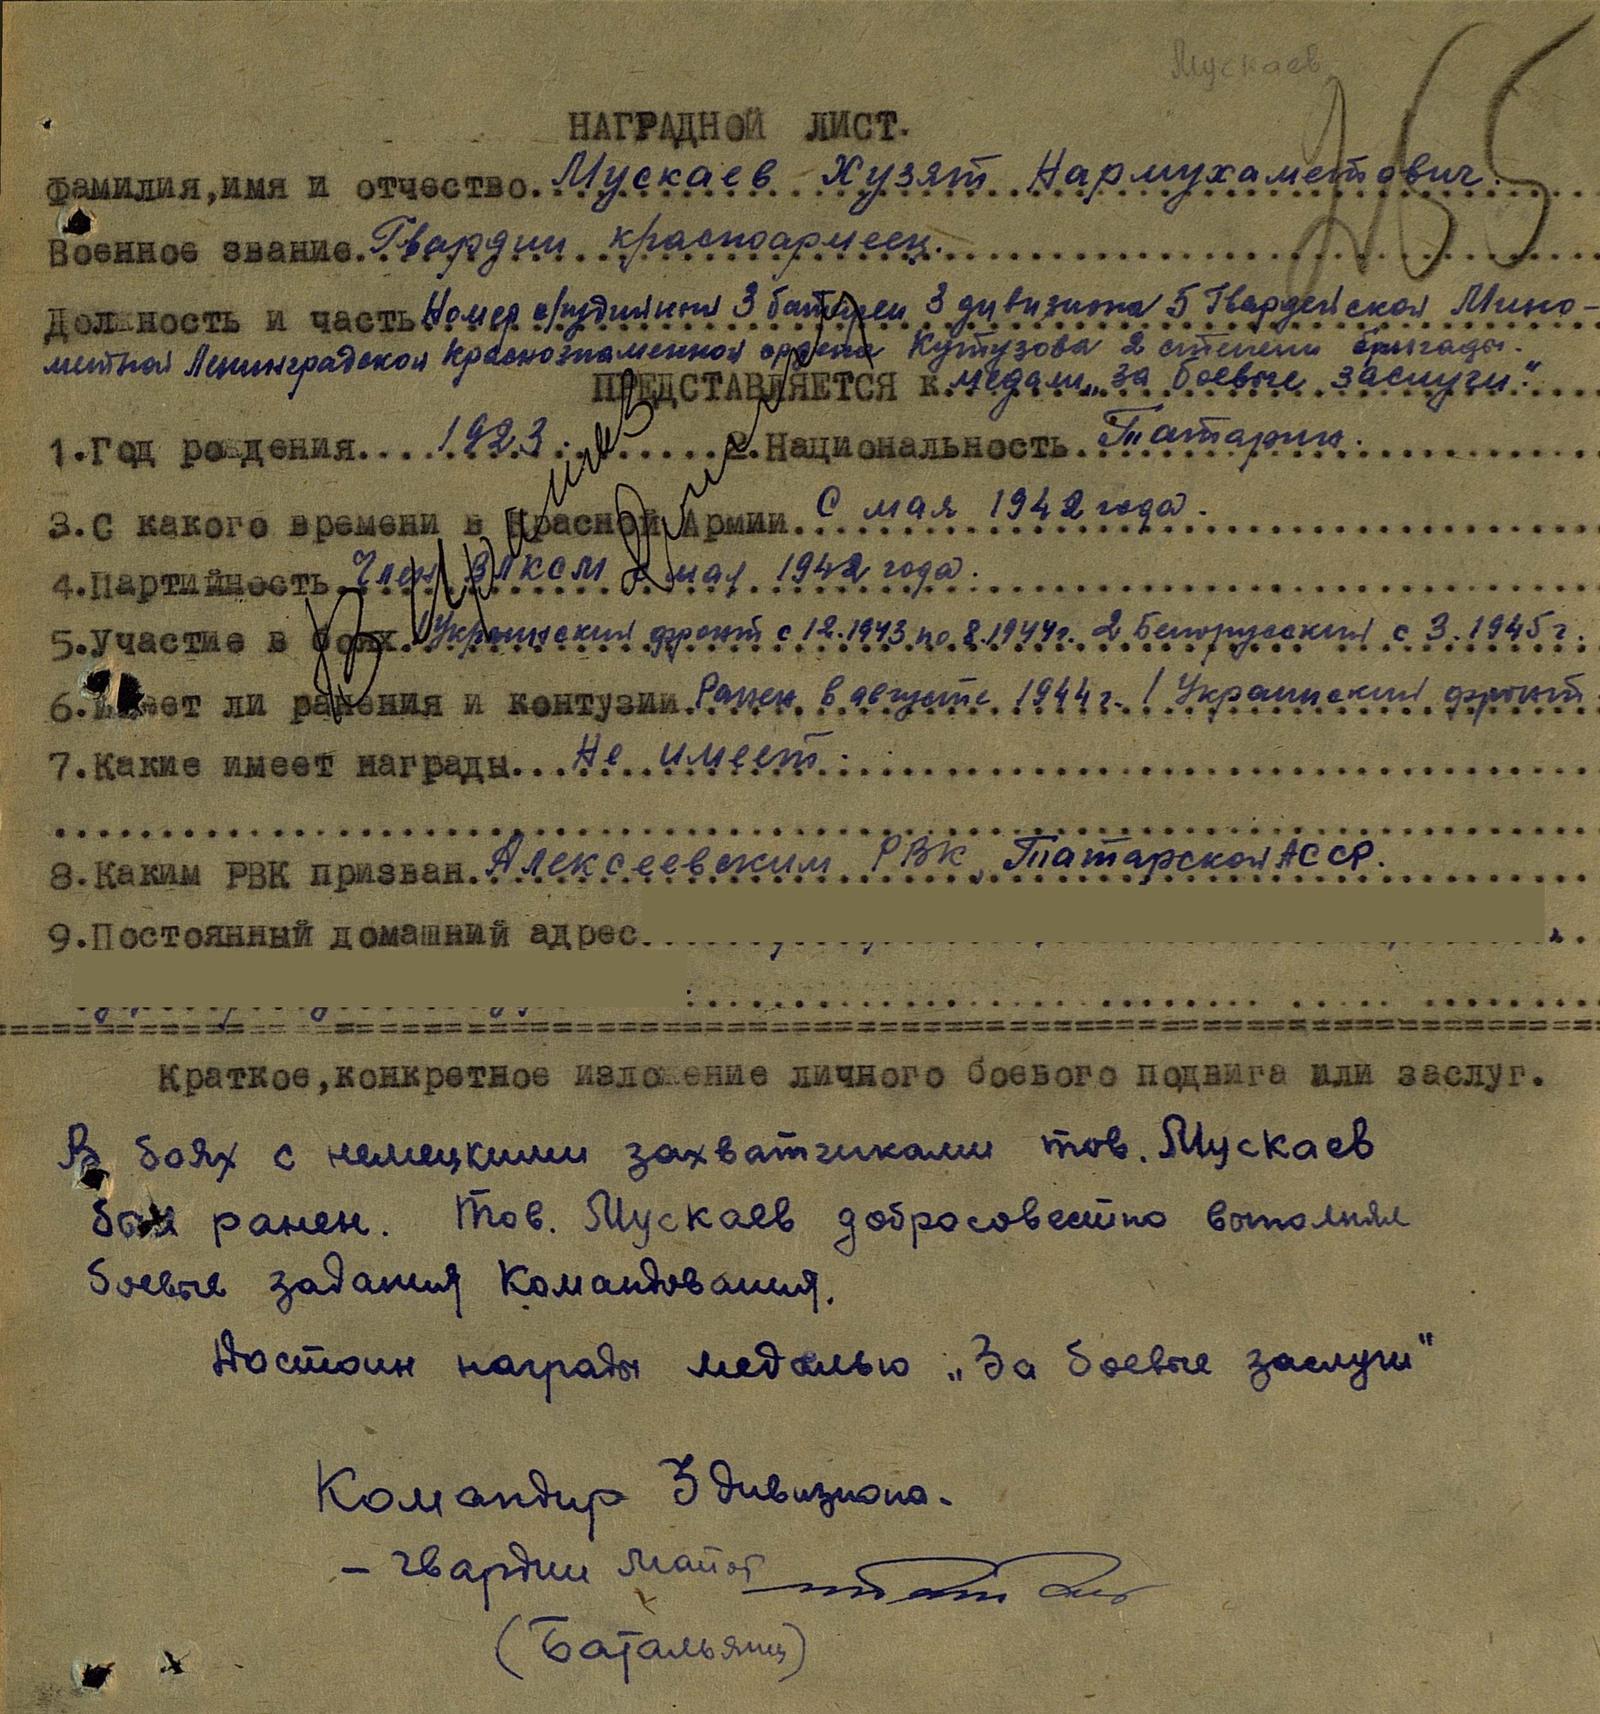 Мускаев
165
НАГРАДНОЙ ЛИСТ.
Фамилия,имя и отчество. Мускаев Хузят Нармухаметович.
Военное звание. Гвардии красноармеец.
Должность и часть Номер орудийный 3 батареи 3 дивизиона 5 Гвардейской Мино-
метной Ленинградской Краснознаменной ордена Кутузова 2 степени бригады.
ПРЕДСТАВЛЯЕТСЯ к медали „за боевые заслуги."
1.Год рождения.... 1923. 2.Национальность. Татарин.
3.С какого времени в Красной Армии. С мая 1942 года.
4.Партийность. Член ВЛКСМ с мая 1942 года.
5.Участие в боях. 1 Украинский фронт с 12.1943 по 8.1944г. 2 Белорусский с 3.1945г.
6.Имеет ли ранения и контузии. Ранен в августе 1944г. 1 Украинский фронт.
7.Какие имеет награды... Не имеет.
8.Каким РВК призван. Алексеевским РВК, Татарской АССР.
9.Постоянный домашний адрес.
Краткое,конкретное изложение личного боевого подвига или заслуг.
В боях с немецкими захватчиками тов. Мускаев
был ранен. Тов. Мускаев добросовестно выполнял
боевые задания Командования.
Достоин награды медалью „За боевые заслуги"
Командир 3 дивизиона.
- гвардии майор
(Батальянц)